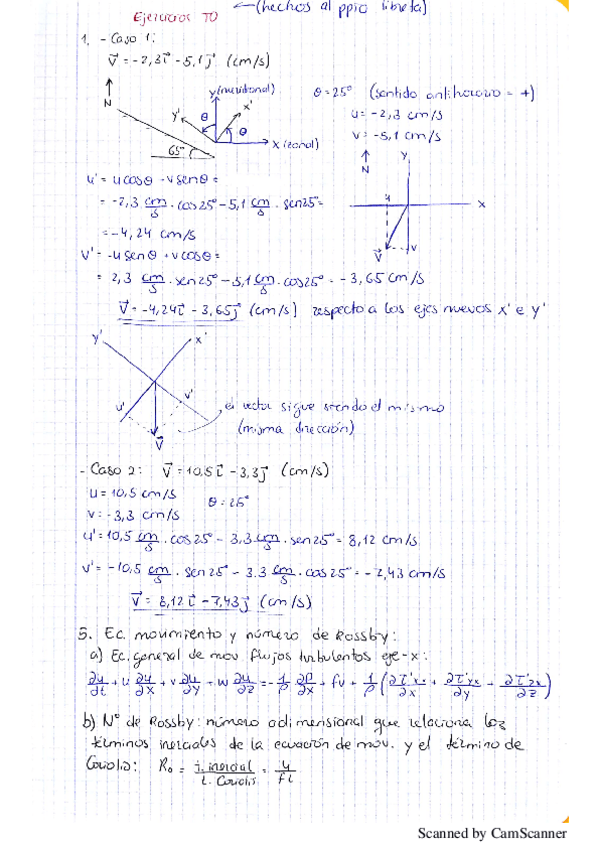 ←(hechos al ppio libreta)
Ejercicios TD
1. - Caso 1:
v⃗ = -2,3i⃗ - 5,1j⃗ (cm/s)
N
y (meridional)
y'
x'
θ
θ
x (zonal)
65°
θ = 25° (sentido antihorario = +)
u = -2,3 cm/s
v = -5,1 cm/s
N
y
x
u
v
v⃗
u' = u cosθ + v senθ =
= -2,3 cm/s · cos25° - 5,1 cm/s · sen25° =
= -4,24 cm/s
v' = -u senθ + v cosθ =
= 2,3 cm/s · sen25° - 5,1 cm/s · cos25° = -3,65 cm/s
v⃗ = -4,24i⃗ - 3,65j⃗ (cm/s) respecto a los ejes nuevos x' e y'
y'
x'
u'
v'
v⃗
, el vector sigue siendo el mismo
(misma dirección)
- Caso 2: v⃗ = 10,5i⃗ - 3,3j⃗ (cm/s)
u = 10,5 cm/s
v = -3,3 cm/s
θ = 25°
u' = 10,5 cm/s · cos25° - 3,3 cm/s · sen25° = 8,12 cm/s
v' = -10,5 cm/s · sen25° - 3.3 cm/s · cos25° = -7,43 cm/s
v⃗ = 8,12i⃗ - 7,43j⃗ (cm/s)
5. Ec. movimiento y número de Rossby:
a) Ec. general de mov. flujos turbulentos eje-x:
∂u/∂t + u ∂u/∂x + v ∂u/∂y + w ∂u/∂z = -1/ρ ∂p/∂x + fv + 1/ρ (∂τ'xx/∂x + ∂τ'yx/∂y + ∂τ'zx/∂z)
b) Nº de Rossby: número adimensional que relaciona los
términos inerciales de la ecuación de mov. y el término de
Coriolis: Ro = t. inercial/t. Coriolis = u/fL
Scanned by CamScanner